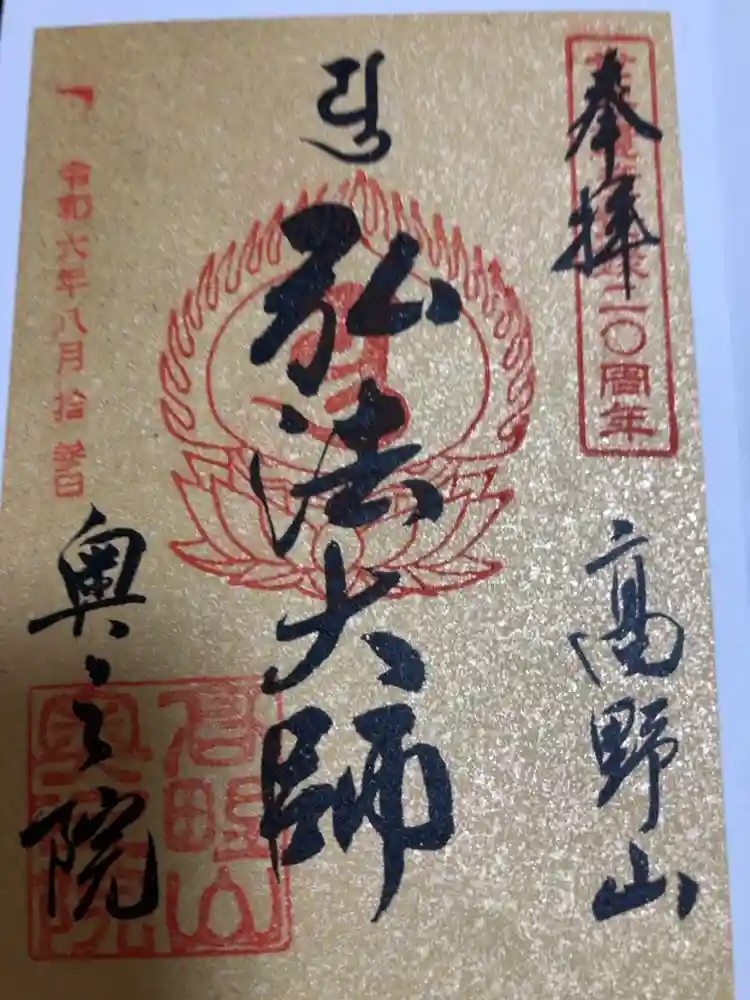 奉拝
二〇周年
高野山
弘法大師
奥之院
令和六年八月拾
日
高野山
奥之院